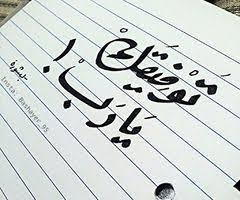 تَوفيقكَ
يَا رَب !
بشيرة
Insta: Bashayer_95